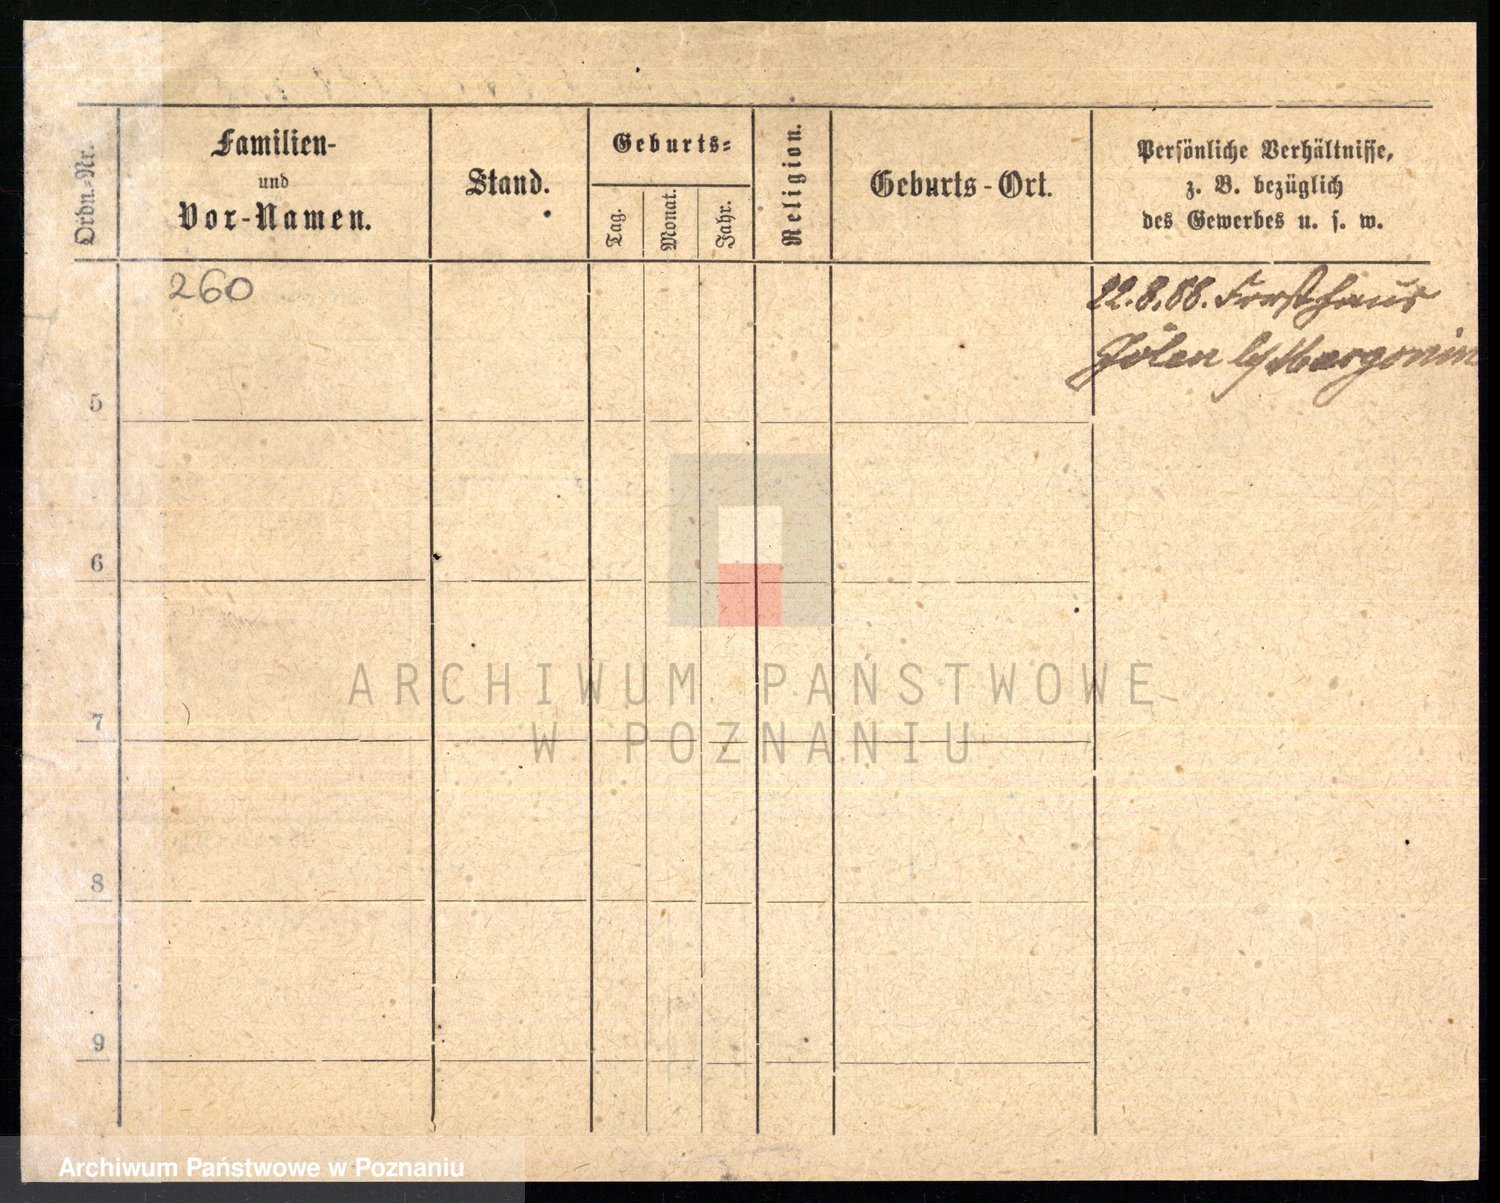 Ordn.-Nr.
Familien-
und
Vor-Namen.
Stand.
Geburts-
Tag.
Monat.
Jahr.
Religion.
Geburts-Ort.
Persönliche Verhältnisse,
z. B. bezüglich
des Gewerbes u. s. w.
260
22.8.88. Forsthaus
b/ Margonin
5
6
7
8
9
ARCHIWUM PAŃSTWOWE
W POZNANIU
Archiwum Państwowe w Poznaniu